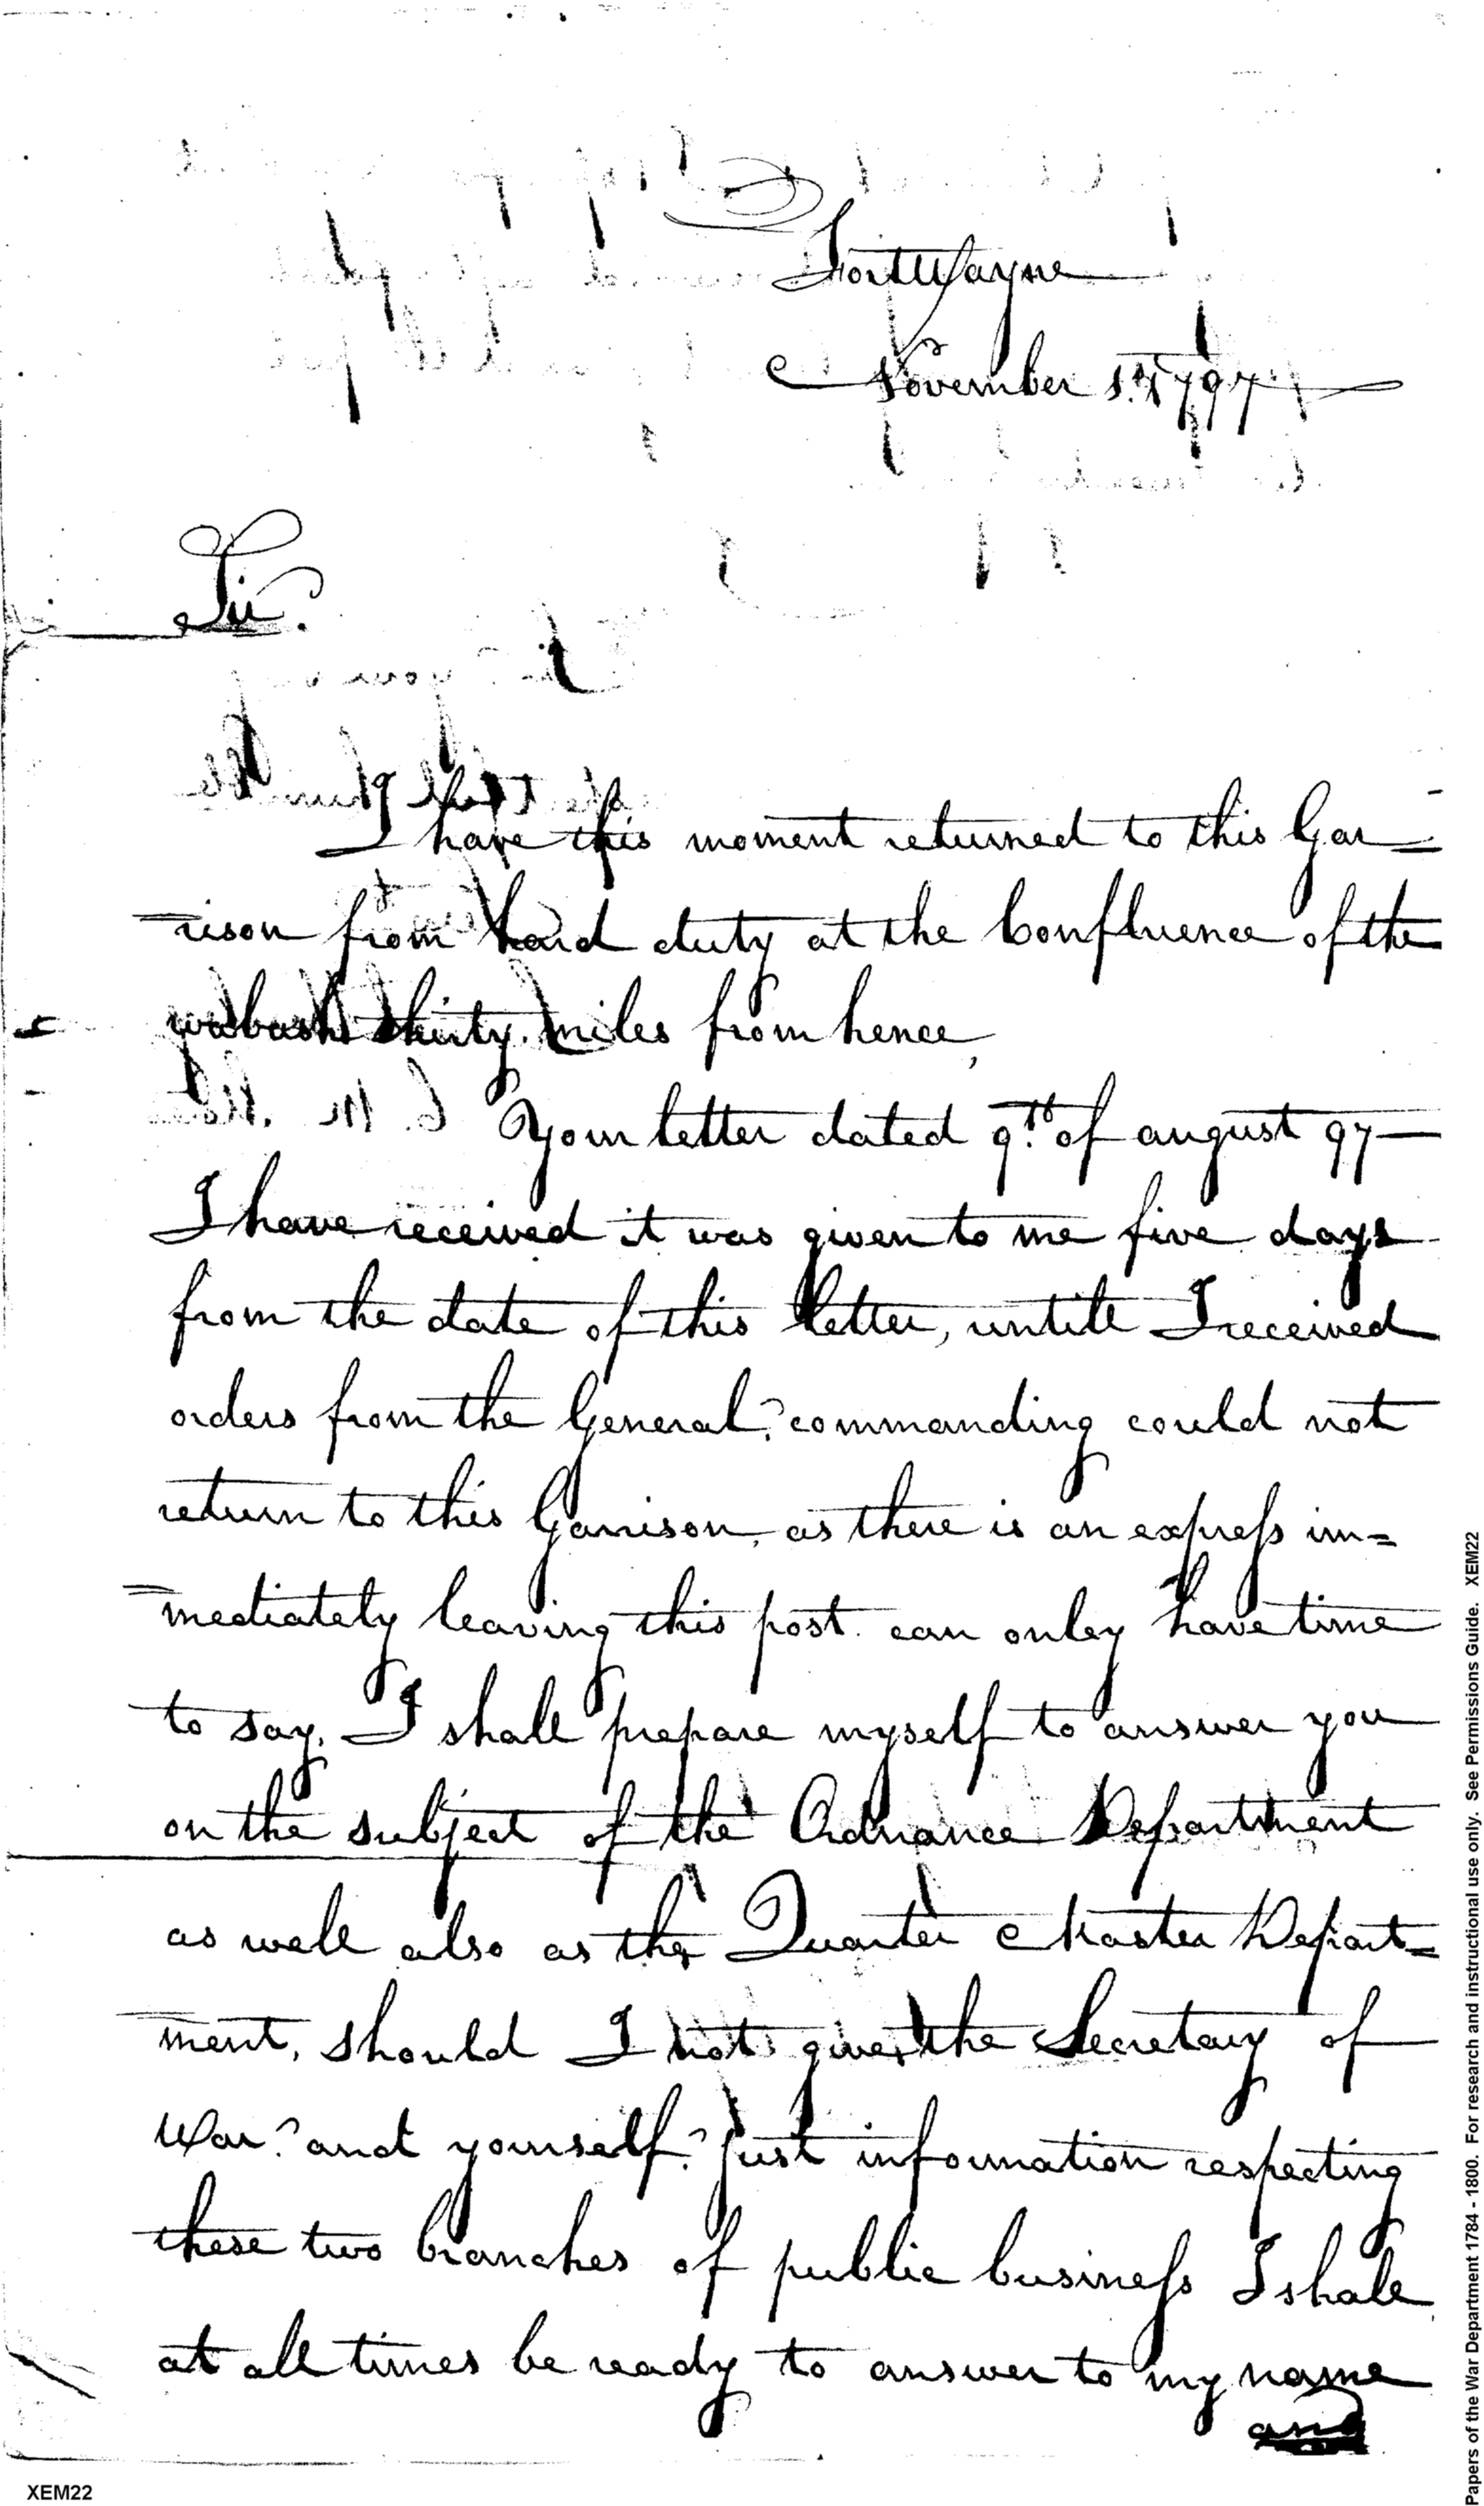 Fort Wayne
November 1st 1797
Sir.
I have this moment returned to this Gar=
=rison from hard duty at the Confluence of the
wabash thirty miles from hence,
Your letter dated 9th of august 97—
I have received it was given to me five days
from the date of this letter, untill I received
orders from the General? commanding could not
return to this Garrison, as there is an express im=
=mediately leaving this post. can onley have time
to say, I shall prepare myself to answer you
on the subject of the Ordnance Department
as well also as the Quarter Master Depart=
ment, should I not give the Secretary of
War? and yourself? just information respecting
these two branches of public business I shall
at all times be ready to answer to my name
and
XEM22
Papers of the War Department 1784 - 1800. For research and instructional use only. See Permissions Guide. XEM22